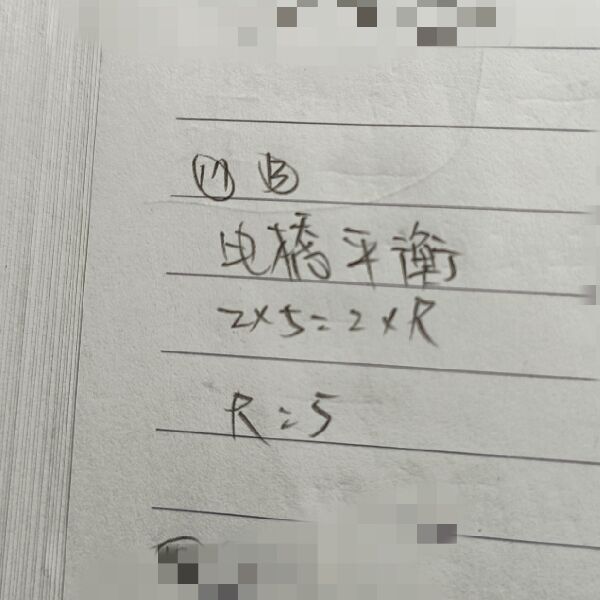 (1) B
电桥平衡
2×5=2×R
R=5